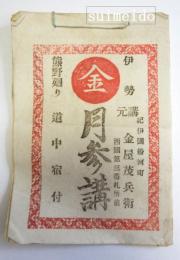 伊勢講元
紀伊國粉河町
金屋茂兵衛
西國第三番札所前
金
月参講
熊野廻り 道中宿付